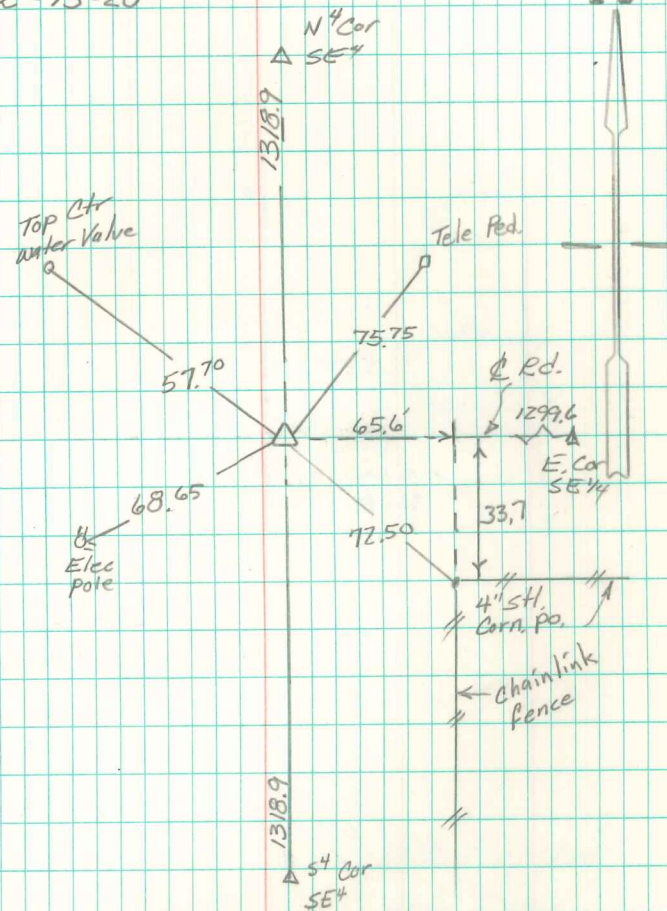 N⁴ Cor
SE⁴
1318.9
Top Ctr
water Valve
Tele Ped.
57.70
75.75
℄ Rd.
65.6'
1299.6
E. Cor
SE¼
68.65
72.50
33.7
Elec
pole
4" Stl.
Corn. po.
Chainlink
fence
1318.9
S⁴ Cor
SE⁴